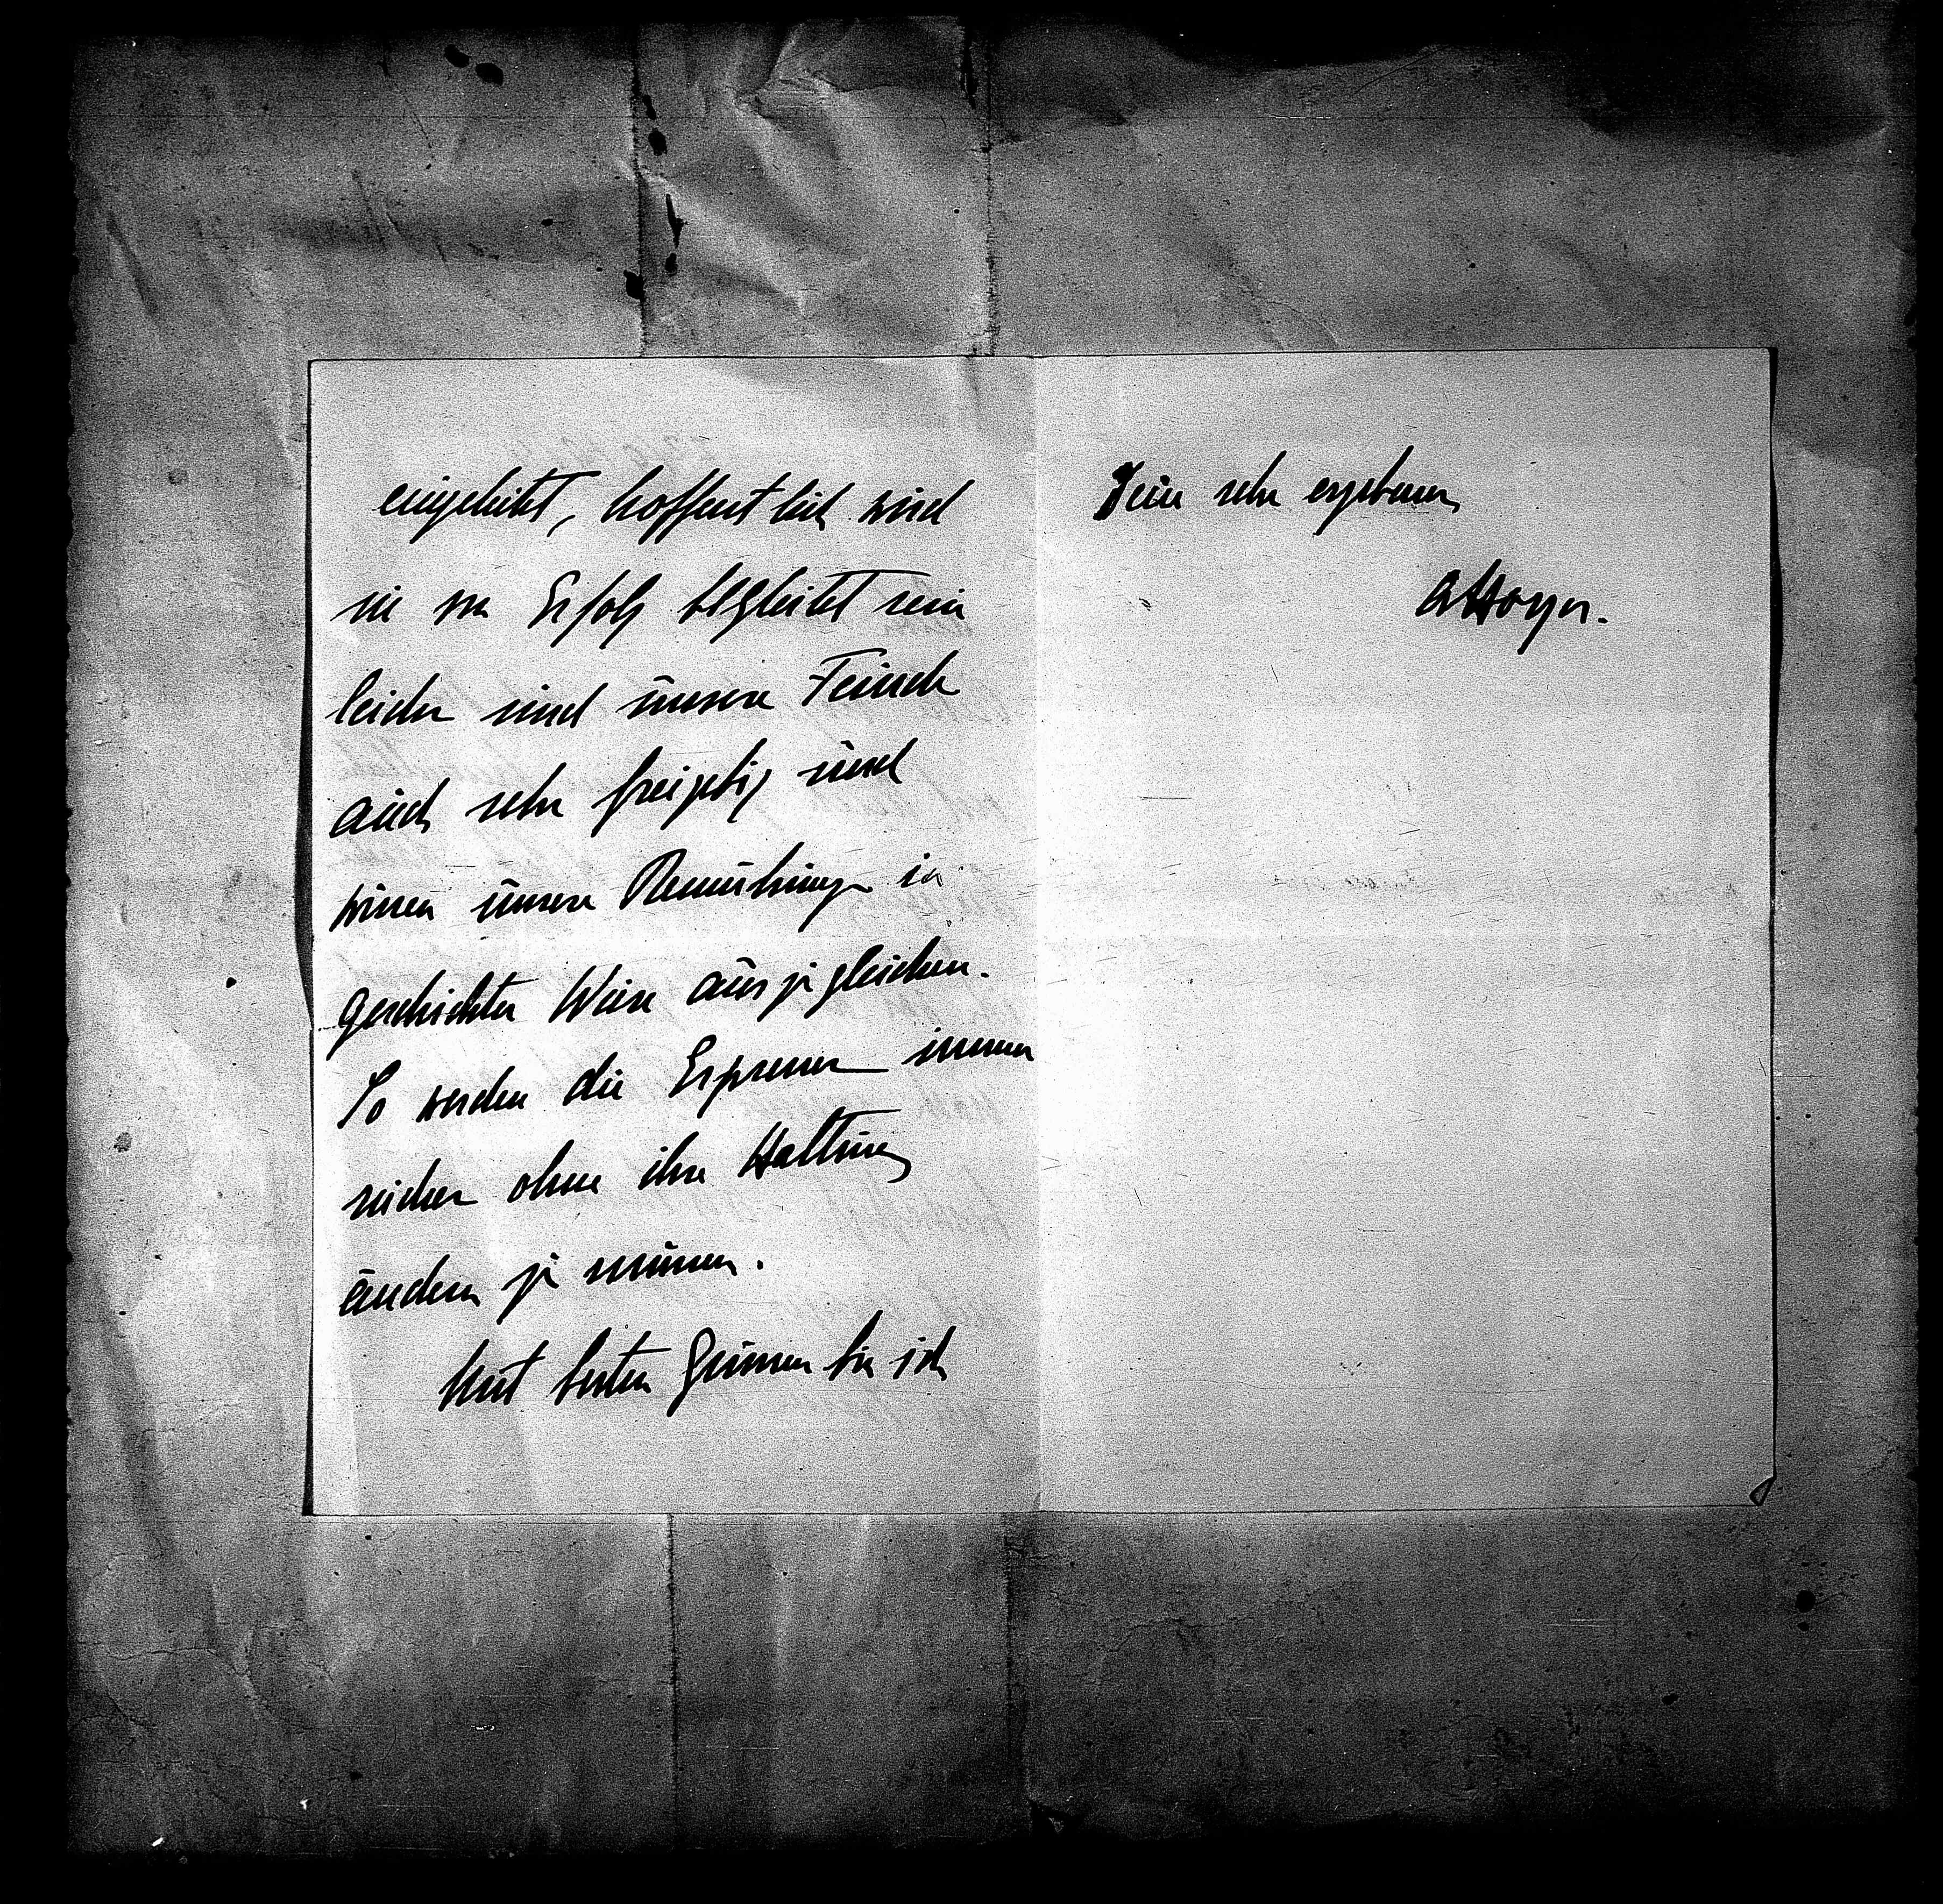 eingeleitet, hoffentlich wird
sie von Erfolg begleitet sein
leider sind unsere Feinde
auch sehr freigebig und
wissen unsere Bemühungen in
geschickter Weise auszugleichen.
So werden die Erpresser immer
reicher ohne ihre Haltung
ändern zu müssen.
Mit besten Grüssen bin ich
Dein sehr ergebener